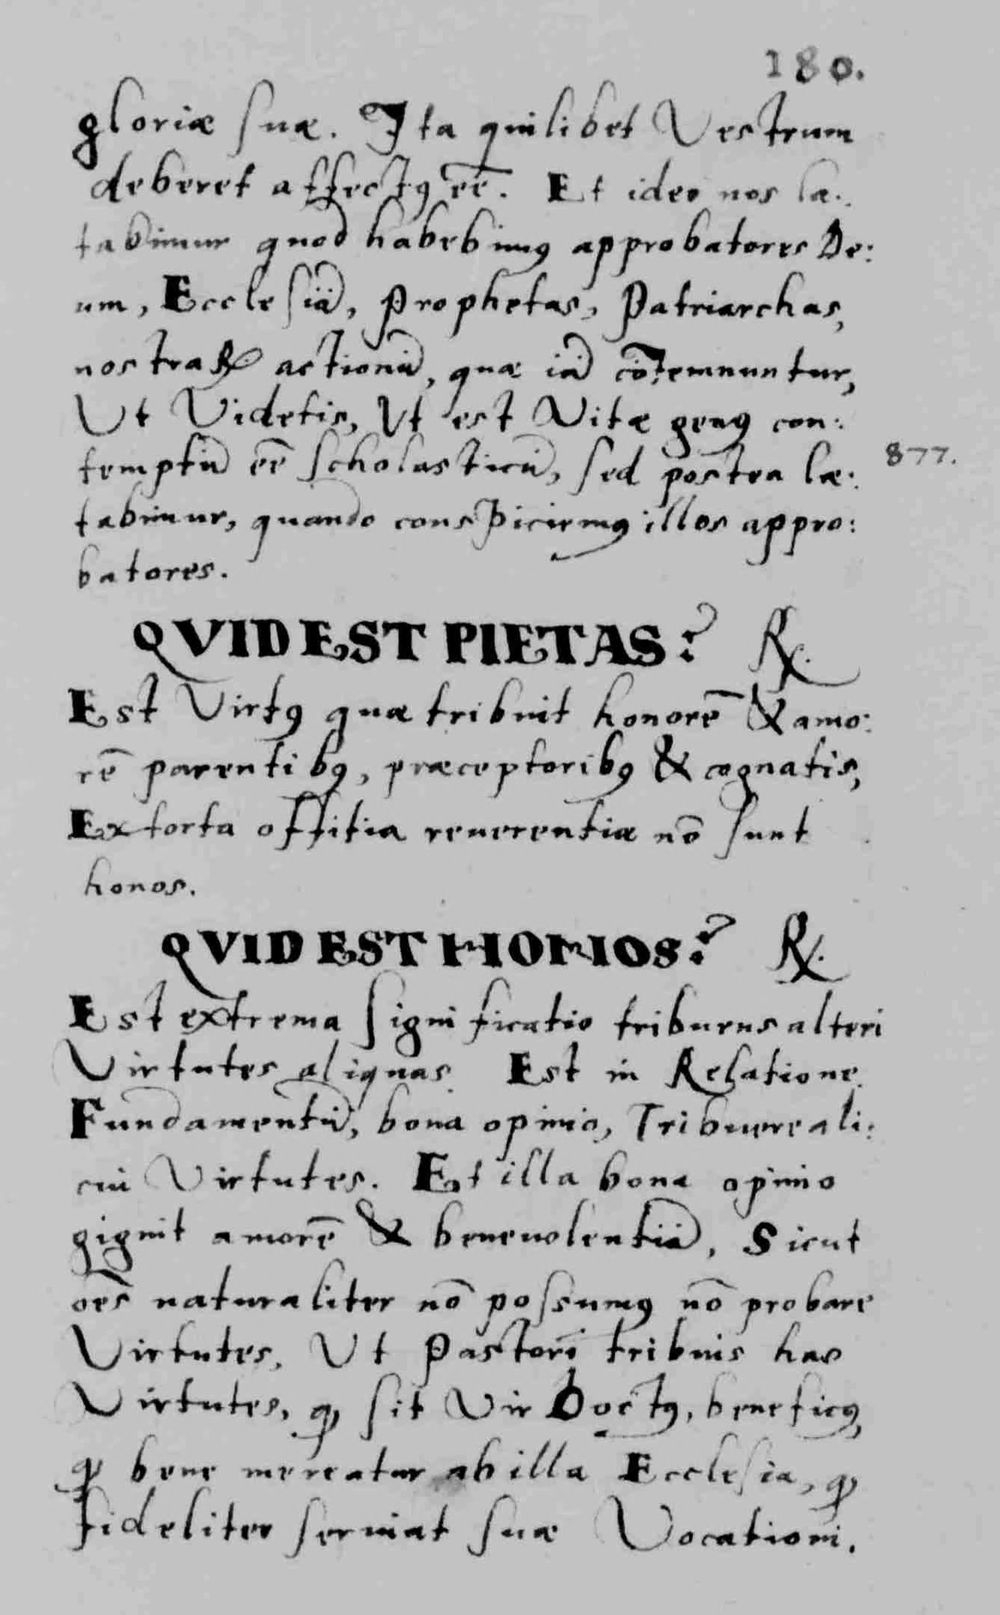 180.
gloriæ suæ. Ita quilibet Vestrum
deberet affectꝯ eē. Et ideo nos læ:
tabimur quod habebimꝯ approbatores De:
um, Ecclesiā, Prophetas, Patriarchas,
nostraꝝ actionū, quæ iā cōtemnuntur,
Ut Videtis, Ut est Vitæ genꝯ con:
temptū eē scholasticū, sed postea læ: 877.
tabimur, quando conspiciemꝯ illos appro:
batores.
QVID EST PIETAS? ℞.
Est Virtꝯ quæ tribuit honorē & amo:
rē parentibꝯ, præceptoribꝯ & cognatis,
Extorta offitia reuerentiæ nō sunt
honos.
QVID EST HONOS? ℞.
Est extrema significatio tribuens alteri
Virtutes aliquas. Est in Relatione
Fundamentū, bona opinio, Tribuere ali:
cui Virtutes. Et illa bona opinio
gignit amorē & beneuolentiā, Sicut
oēs naturaliter nō possumꝯ nō probare
Virtutes, Ut Pastori tribuis has
Virtutes, ꝙ sit Vir Doctꝯ, beneficꝯ,
ꝙ bene mereatur ab illa Ecclesia, ꝙ
fideliter seruiat suæ Vocationi.